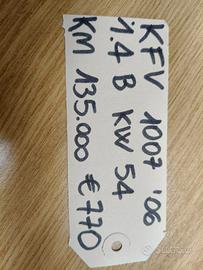 KFV 1007 '06
1.4 B KW 54
KM 135.000 €770